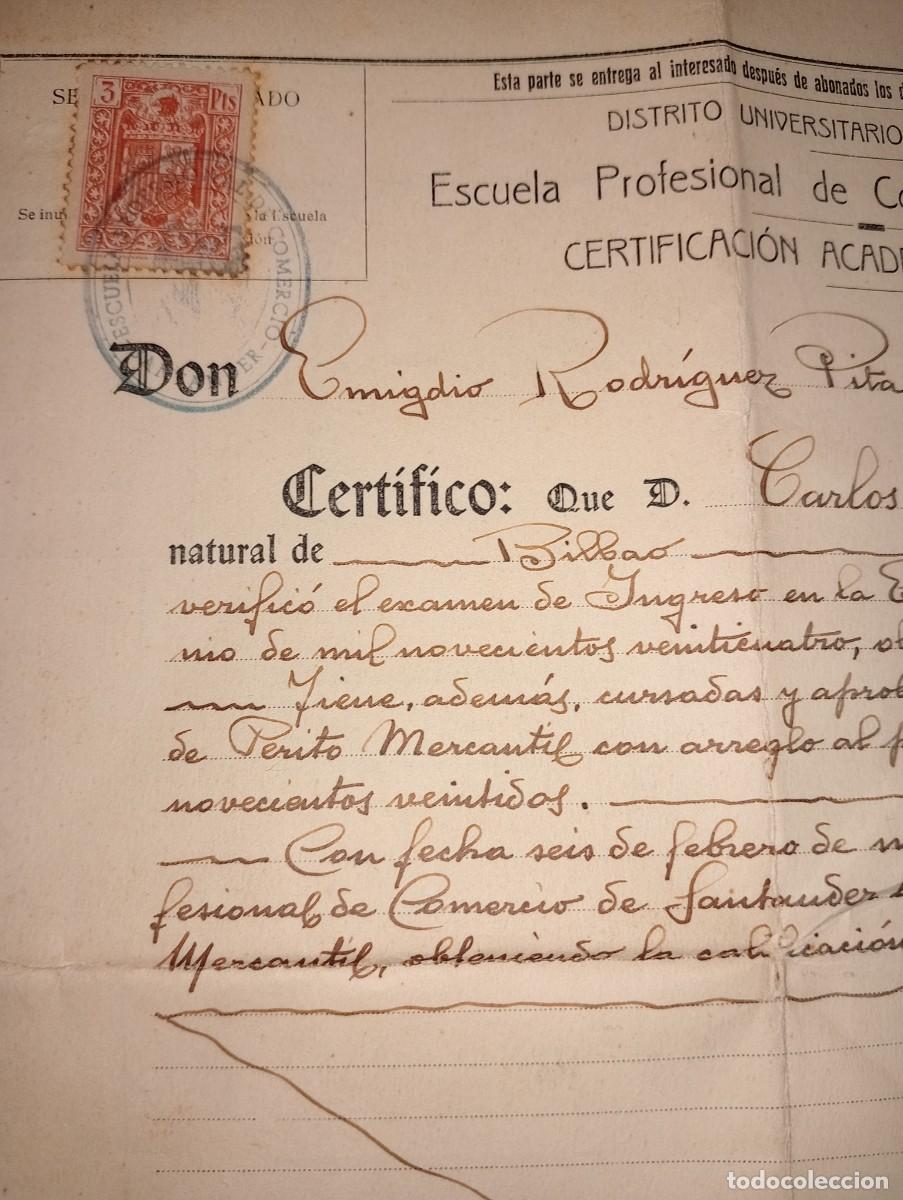 Esta parte se entrega al interesado después de abonados los d
SE ADO
3 Pts
Se inu la Escuela
ión
ESCUELA COMERCIO
DISTRITO UNIVERSITARIO
Escuela Profesional de Co
CERTIFICACIÓN ACADÉ
Don Emigdio Rodríguez Pita
Certifico: Que D. Carlos
natural de Bilbao
verificó el examen de Ingreso en la E
nio de mil novecientos veinticuatro, ob
Tiene, además, cursadas y aprob
de Perito Mercantil con arreglo al p
novecientos veintidos.
Con fecha seis de febrero de m
fesional de Comercio de Santander
Mercantil, obteniendo la calificación
todocoleccion